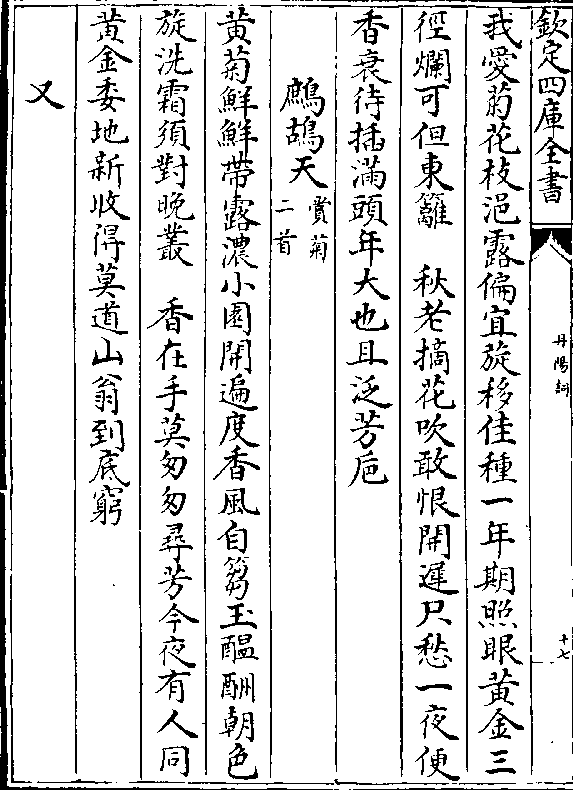 欽定四庫全書
丹陽詞
十七
我愛菊花枝浥露偏宜旋移佳種一年期照眼黃金三
徑爛可但東籬　秋老摘花吹敢恨開遲只愁一夜便
香衰待插滿頭年大也且泛芳巵
鷓鴣天賞菊二首
黃菊鮮鮮帶露濃小園開遍度香風自篘玉醖酬朝色
旋洗霜須對晚叢　香在手莫匆匆尋芳今夜有人同
黃金委地新收得莫道山翁到底窮
又